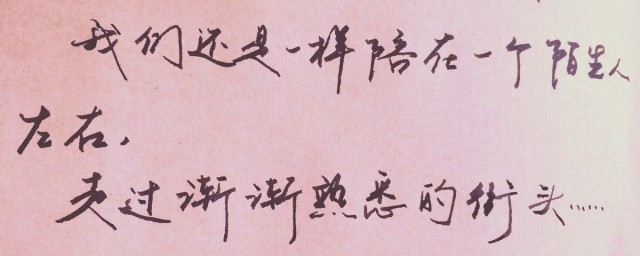 我们还是一样陪在一个陌生人
左右，
走过渐渐熟悉的街头……